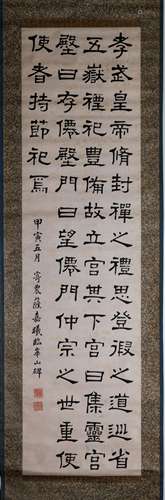 孝武皇帝脩封禪之禮思登徦之道巡省
五嶽禋祀豐備故立宮其下宮曰集靈宮
壂曰存僊壂門曰望僊門仲宗之世重使
使者持節祀焉
甲寅五月 寄農薩嘉曦臨華山碑